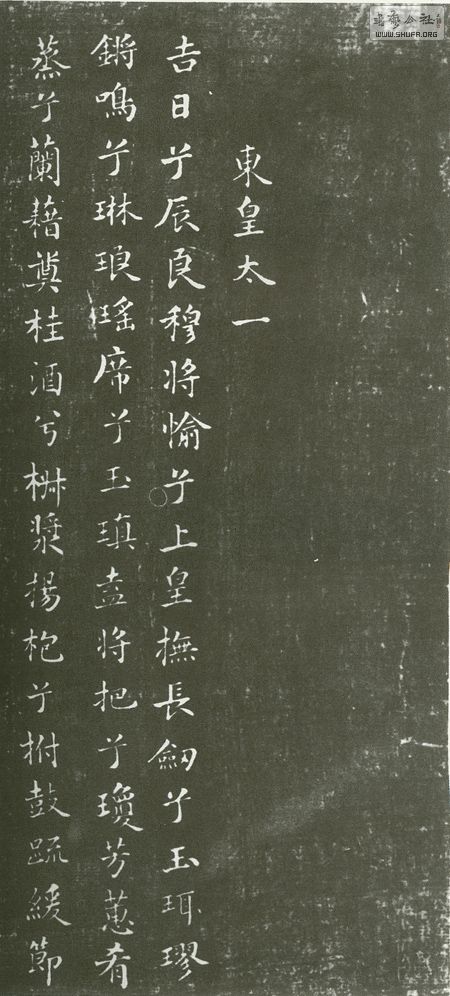 書法公社
WWW.SHUFA.ORG
東皇太一
吉日兮辰良穆將愉兮上皇撫長劔兮玉珥璆
鏘鳴兮琳琅瑤席兮玉瑱盍將把兮瓊芳蕙肴
蒸兮蘭藉奠桂酒兮椒漿揚枹兮拊鼓疏緩節